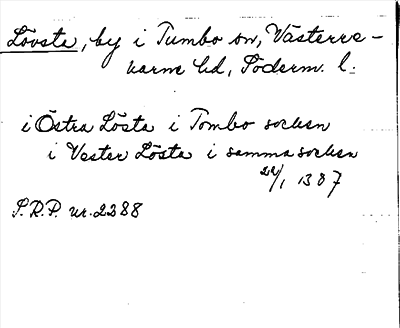 Lövsta, by i Tumbo sn, Västerre-
karne hd, Söderm. l.
i Östra Lösta i Tombo sochen
i Vester Lösta i samma sochen
22/1 1387
S.R.P. nr. 2388